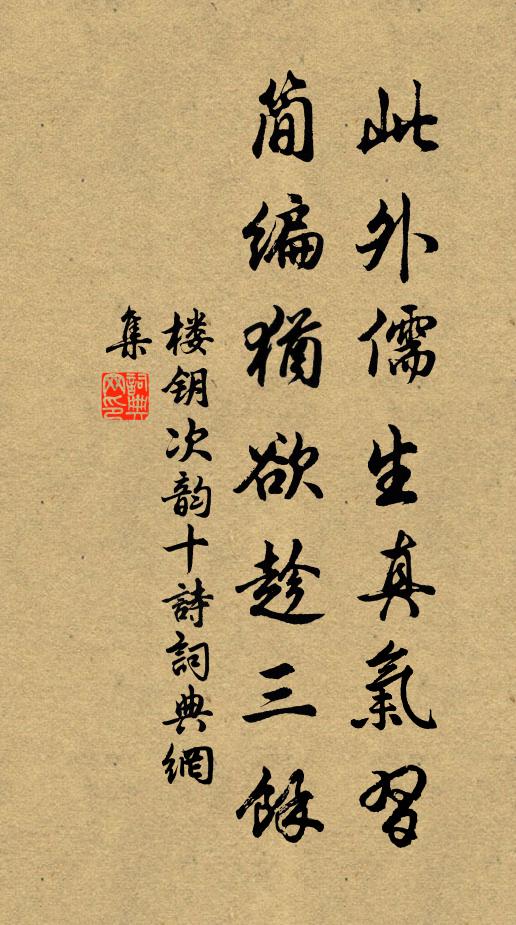 此外儒生真氣習
简编猶欲趁三餘
楼钥次韵十詩詞典網
集
詞典網印